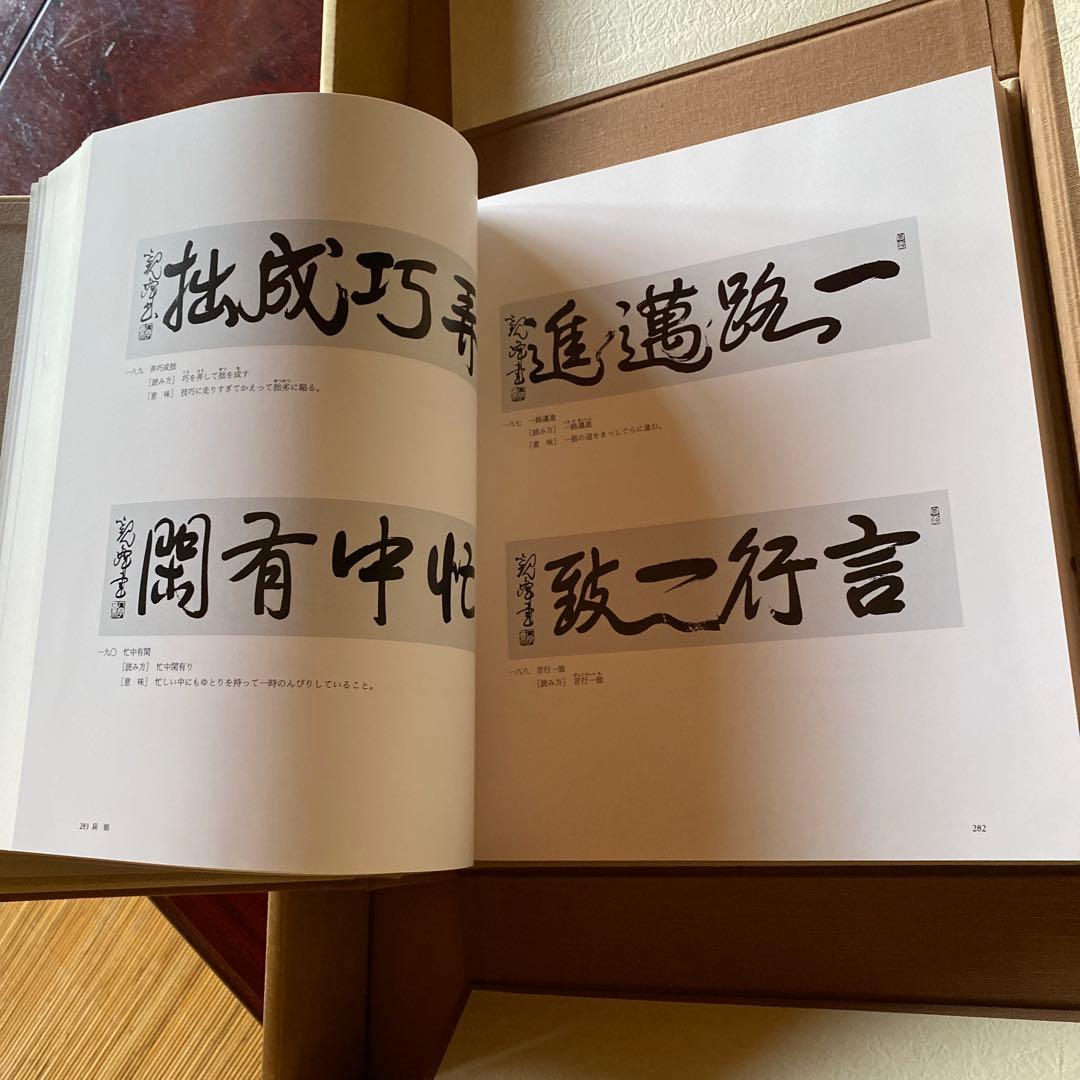 一路邁進
観峰書
一八七 一路邁進
[読み方] 一路邁進
[意 味] 一筋の道をまっしぐらに進む。
言行一致
観峰書
一八八 言行一致
[読み方] 言行一致
282
弄巧成拙
観峰書
一八九 弄巧成拙
[読み方] 巧を弄して拙を成す
[意 味] 技巧に走りすぎてかえって拙劣に陥る。
忙中有閑
観峰書
一九〇 忙中有閑
[読み方] 忙中閑有り
[意 味] 忙しい中にもゆとりを持って一時のんびりしていること。
283 扁 額